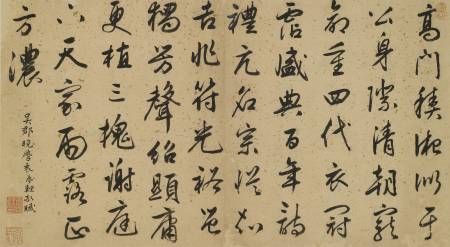 高門積淑似于
公身際清朝寵
命重四代衣冠
霑盛典百年詩
禮亢名宗從知
吉兆符光裕豈
獨芳聲紹顯庸
更植三槐謝庭
下天家雨露正
方濃
吳郡晚學袁敬賦